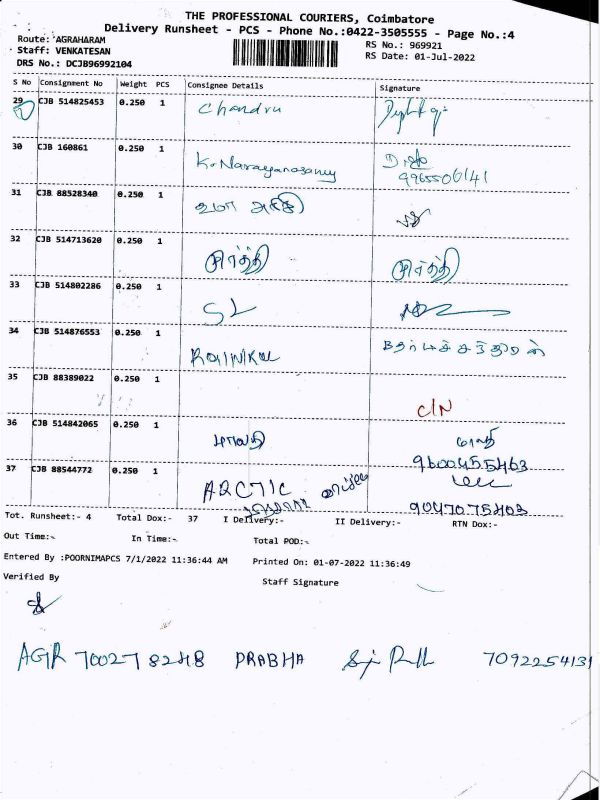 THE PROFESSIONAL COURIERS, Coimbatore
Delivery Runsheet - PCS - Phone No.:0422-3505555 - Page No.:4
Route: AGRAHARAM
RS No.: 969921
Staff: VENKATESAN
RS Date: 01-Jul-2022
DRS No.: DCJB96992104
S No Consignment No Weight PCS Consignee Details Signature
29 CJB 514825453 0.250 1 Chandru
30 CJB 160861 0.250 1 K. Narayanasamy
9965506141
31 CJB 88528340 0.250 1 உமா
32 CJB 514713620 0.250 1
33 CJB 514802286 0.250 1 SL
34 CJB 514876553 0.250 1
35 CJB 88389022 0.250 1 C/N
36 CJB 514842065 0.250 1 மாலதி
9600455463
37 CJB 88544772 0.250 1 ARCTIC
9047075403
Tot. Runsheet:- 4 Total Dox:- 37 I Delivery:- II Delivery:- RTN Dox:-
Out Time:- In Time:- Total POD:-
Entered By :POORNIMAPCS 7/1/2022 11:36:44 AM Printed On: 01-07-2022 11:36:49
Verified By Staff Signature
AGR 700278248 PRABHA 7092254131